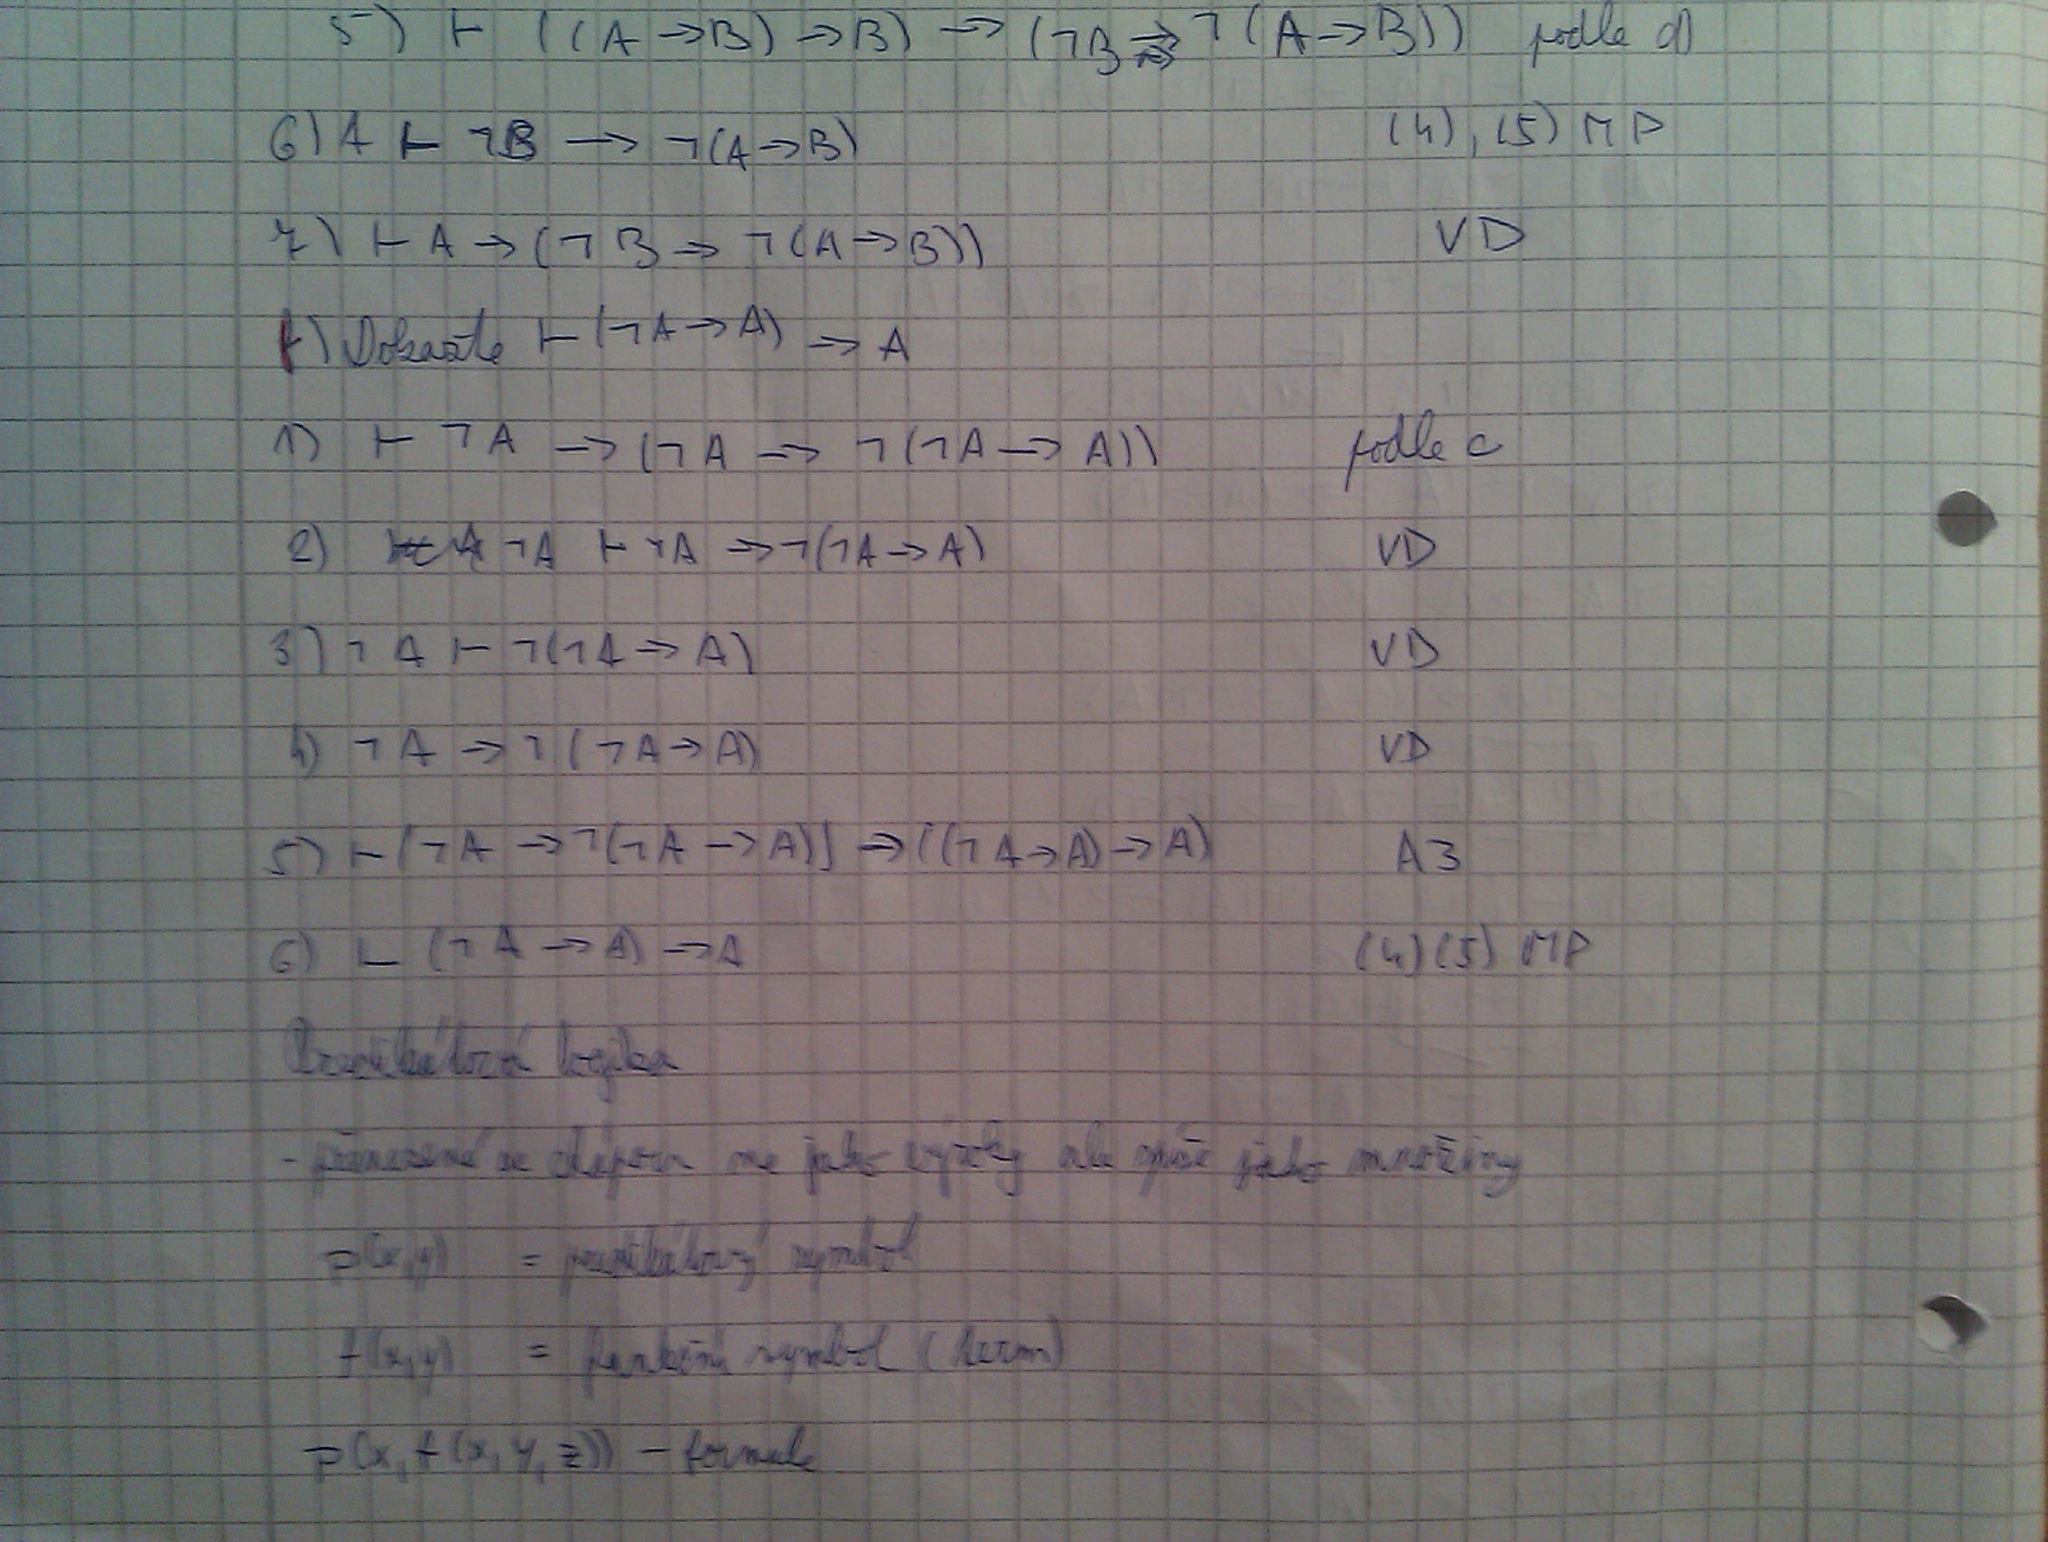 5) ⊢ ((A → B) → B) → (¬B → ¬(A → B)) podle d)
6) A ⊢ ¬B → ¬(A → B) (4), (5) MP
7) ⊢ A → (¬B → ¬(A → B)) VD
f) Dokažte ⊢ (¬A → A) → A
1) ⊢ ¬A → (¬A → ¬(¬A → A)) podle c
2) ¬A ⊢ ¬A → ¬(¬A → A) VD
3) ¬A ⊢ ¬(¬A → A) VD
4) ¬A → ¬(¬A → A) VD
5) ⊢ (¬A → ¬(¬A → A)) → ((¬A → A) → A) A3
6) ⊢ (¬A → A) → A (4)(5) MP
Predikátová logika
- se ne jako výroky ale spíše jako množiny
p(x,y) = predikátový symbol
f(x,y) = funkční symbol (term)
p(x, f(x, y, z)) - formule